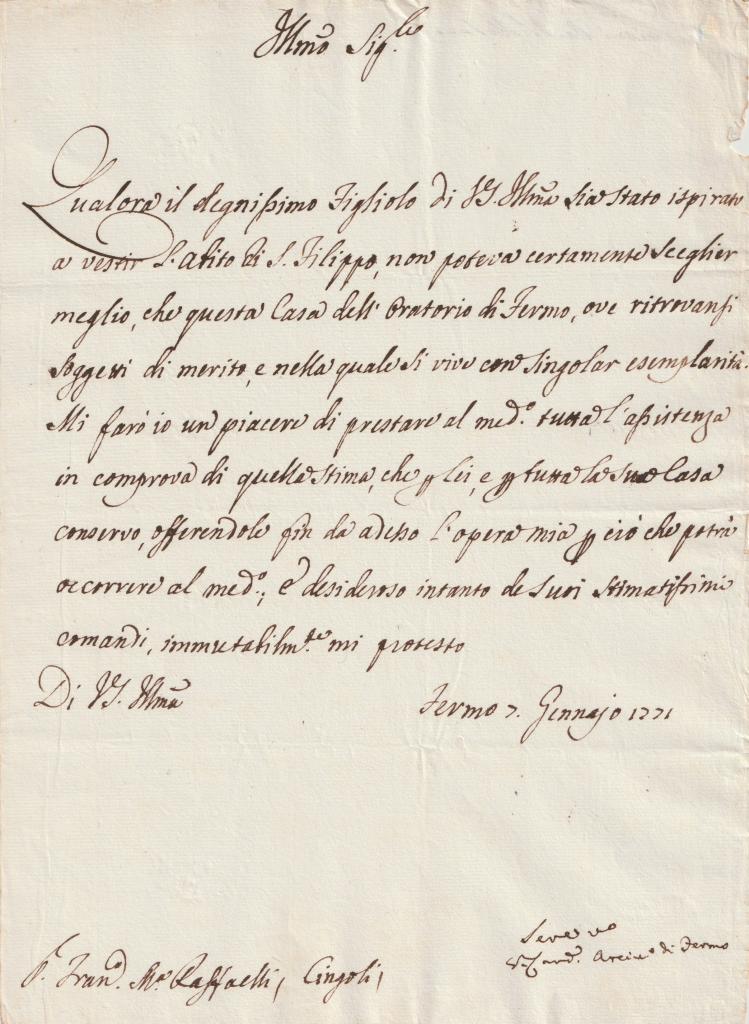 Illmo Sig.re
Qualora il degnissimo Figliolo di VS. Illma sia stato ispirato
a vestir l'abito di S. Filippo, non poteva certamente sceglier
meglio, che questa Casa dell' Oratorio di Fermo, ove ritrovansi
soggetti di merito, e nella quale si vive con singolar esemplarità.
Mi farò io un piacere di prestare al med.o tutta l'assistenza
in comprova di quella stima, che p lei, e p tutta la sua Casa
conservo, offerendole fin da adesso l'opera mia p ciò che potrà
occorrere al med.o; e desideroso intanto de suoi stimatissimi
comandi, immutabilm.te mi protesto
Di VS. Illma
Fermo 7. Gennajo 1771
Servo vo
Card. Arciv.o di Fermo
Fran.o M.a Raffaelli, Cingoli,